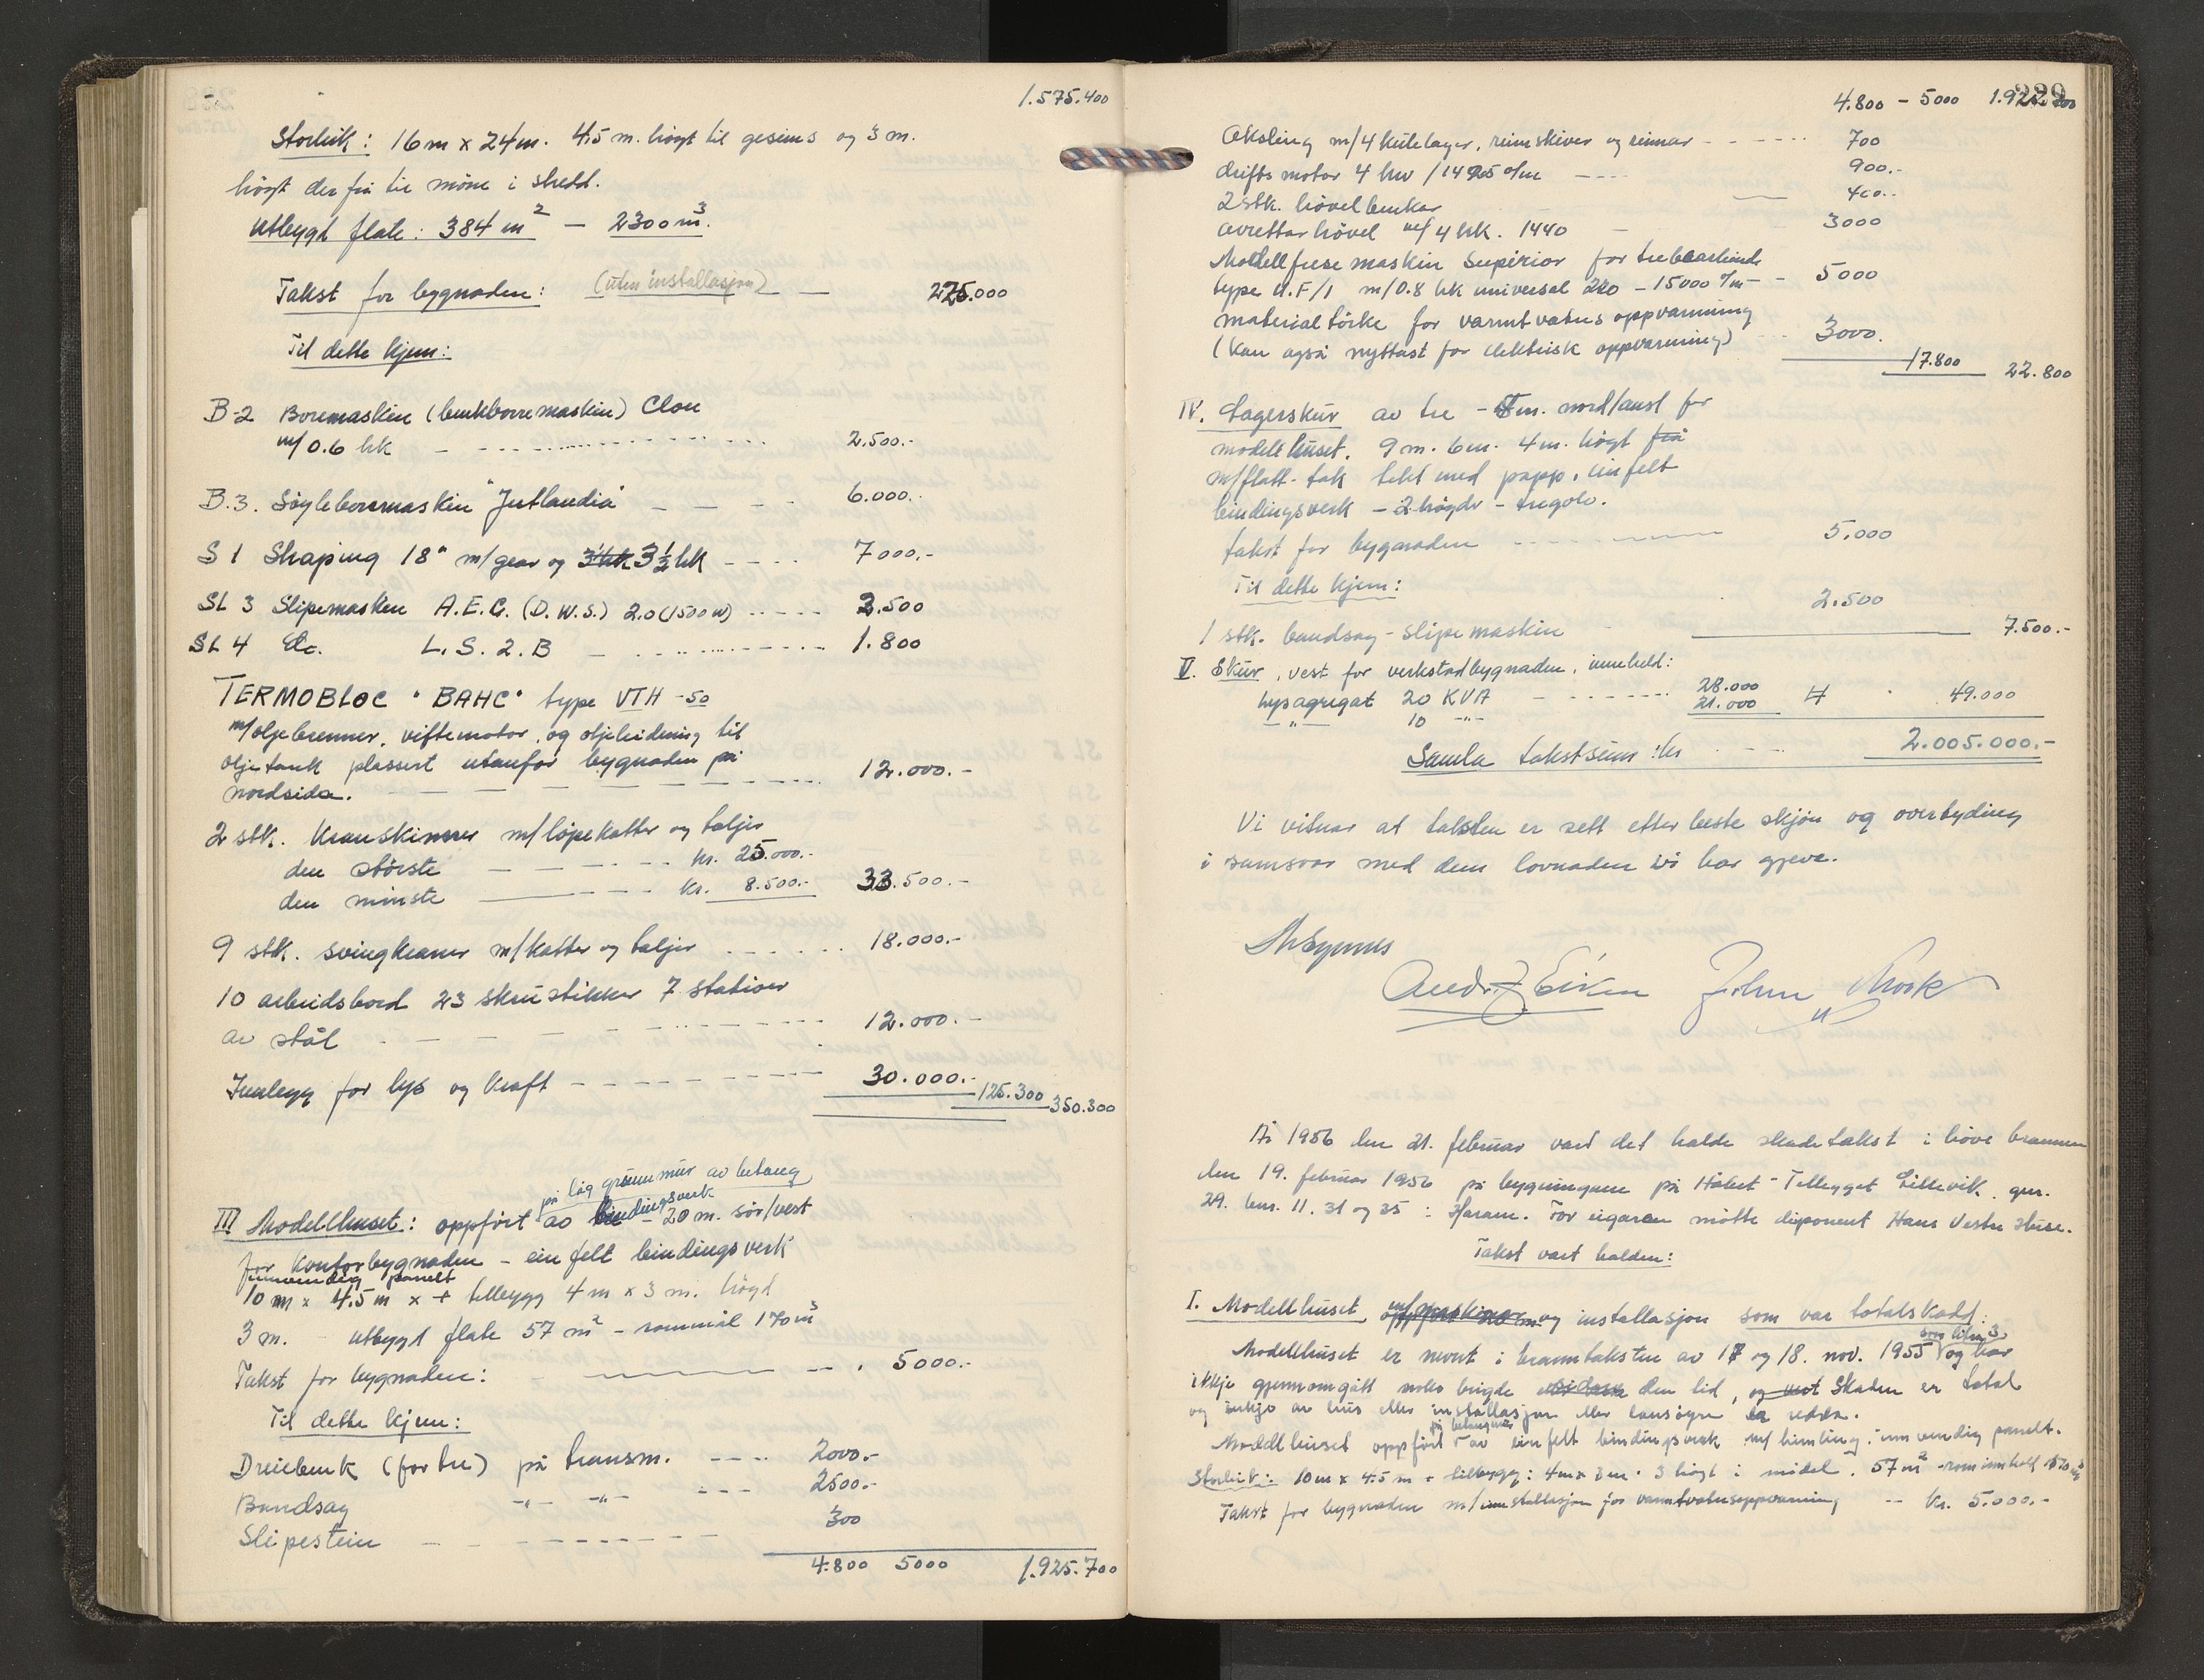 1.575.400
Storleik: 16m x 24m. 4,5 m. høgt til gesims og 3 m.
høgt derfrå til møne i skrått.
Utbygd flate: 384 m² — 2300 m³.
Takst for bygnaden: (uten installasjon) — 225.000
Til dette kjem:
B-2 Boremaskin (benkborremaskin) Clou
m/0.6 hk - - - - 2.500.-
B.3. Søyleborrmaskin "Jutlandia" — — — 6.000.-
S 1 Shaping 18" m/gear og 3½ hk 3½ hk - - - - 7000.-
SL 3 Slipemaskin A.E.G. (D.W.S.) 2.0 (1500 W) ..... 2.500
SL 4 Do. L.S.2.B — - - - - 1.800
TERMOBLOC "BAHC" type VTH -50
m/oljebrenner, viftemotor, og oljeleidning til
oljetank plassert utanfor bygnaden på
nordsida. — — — — 12.000.-
2 stk. Kranskinner m/løpekatter og taljer
den største — - - - kr. 25.000.-
den minste — - - - kr. 8.500.- 33.500.-
9 stk. svingkraner m/katter og taljer - - - - 18.000.-
10 arbeidsbord 23 skrustikker 7 stativer
av stål - — — - - - - 12.000.-
Innlegg for lys og kraft - - - - - 30.000.- 125.300 350.300
på låg grunnmur av betong
bindingsverk
III Modellhuset: oppført av tre - 20 m. sør/vest
for Kontorbygnaden - einfelt bindingsverk
innvendig panelt
10 m x 4.5 m x + tilbygg 4 m x 3 m. høgd
3 m. - utbygd flate 57 m² - rommål 170 m³
Takst for bygnaden: - — - - . 5000.-
Til dette kjem:
Dreiebenk (for tre) på transm. - - - - 2000.-
Bandsag -"- -"- - - - 2500.-
Slipestein - - - - - - 300
4.800 5000 1.925.700
4.800 - 5000 1.925.700 289
Aksling m/4 kulelager, reimskiver og reimar - - - - 700
driftsmotor 4 hk /1425 o/m - - - - 900.-
2 stk. høvelbenker — 400.-
avrettarhøvel m/4 hk. 1440 - 3000
Modellfresemaskin Superior for trebearbeide
type U.F/1 m/0.8 hk universal 220 - 15000 o/m - - 5000
materialtørke for varmtvatns oppvarming
(kan også nyttast for elektrisk oppvarming) - - 3000.
17.800 22.800
IV. Lagerskur av tre - 5 m. nord/aust for
modellhuset. 9 m. 6 m. 4 m. høgt frå
m/flatt-tak tekt med papp, einfelt
bindingsverk - 2 høgdr - tregolv.
takst for bygnaden - - - - 5.000
Til dette kjem:
2.500
1 stk. bandsag-slipemaskin 7.500.-
V. Skur, vest for verkstadbygnaden, inneheld:
lysagregat 20 KVA - - - - 28.000
— " — 10 -"- 21.000 49.000
Samla takstsum: kr - - - 2.005.000.-
Vi vitnar at taksten er sett etter beste skjøn og overtyding
i samsvar med dem lovnaden vi har gjeve.
År 1956 den 21. februar vart det halde skadetakst i høve brannen
den 19. februar 1956 på bygningane på Håbet - Tillegget Lillevik, gnr.
29. bnr. 11. 31 og 35 i Haram. For eigaren møtte disponent Hans Vestre Huse.
Takst vart halden:
I. Modellhuset m/maskiner og installasjon som var totalskadd:
som litra 3
Modellhuset er nevnt i branntaksten av 17 og 18. nov. 1955 og har
ikkje gjennomgått noko brigde sidan den tid, og Skaden er total
og inkje av hus eller installasjon eller lausøyre er redda.
på betongmur
Modellhuset oppført av einfelt bindingsverk m/himling, innvendig panelt.
Storleik: 10 m x 4.5 m + tilbygg: 4m x 3 m. 3 høgt i midel. 57 m² rominnhold 170 m³
Takst for bygnaden m/installasjon for varmtvatnsoppvarming -- kr. 5.000.-